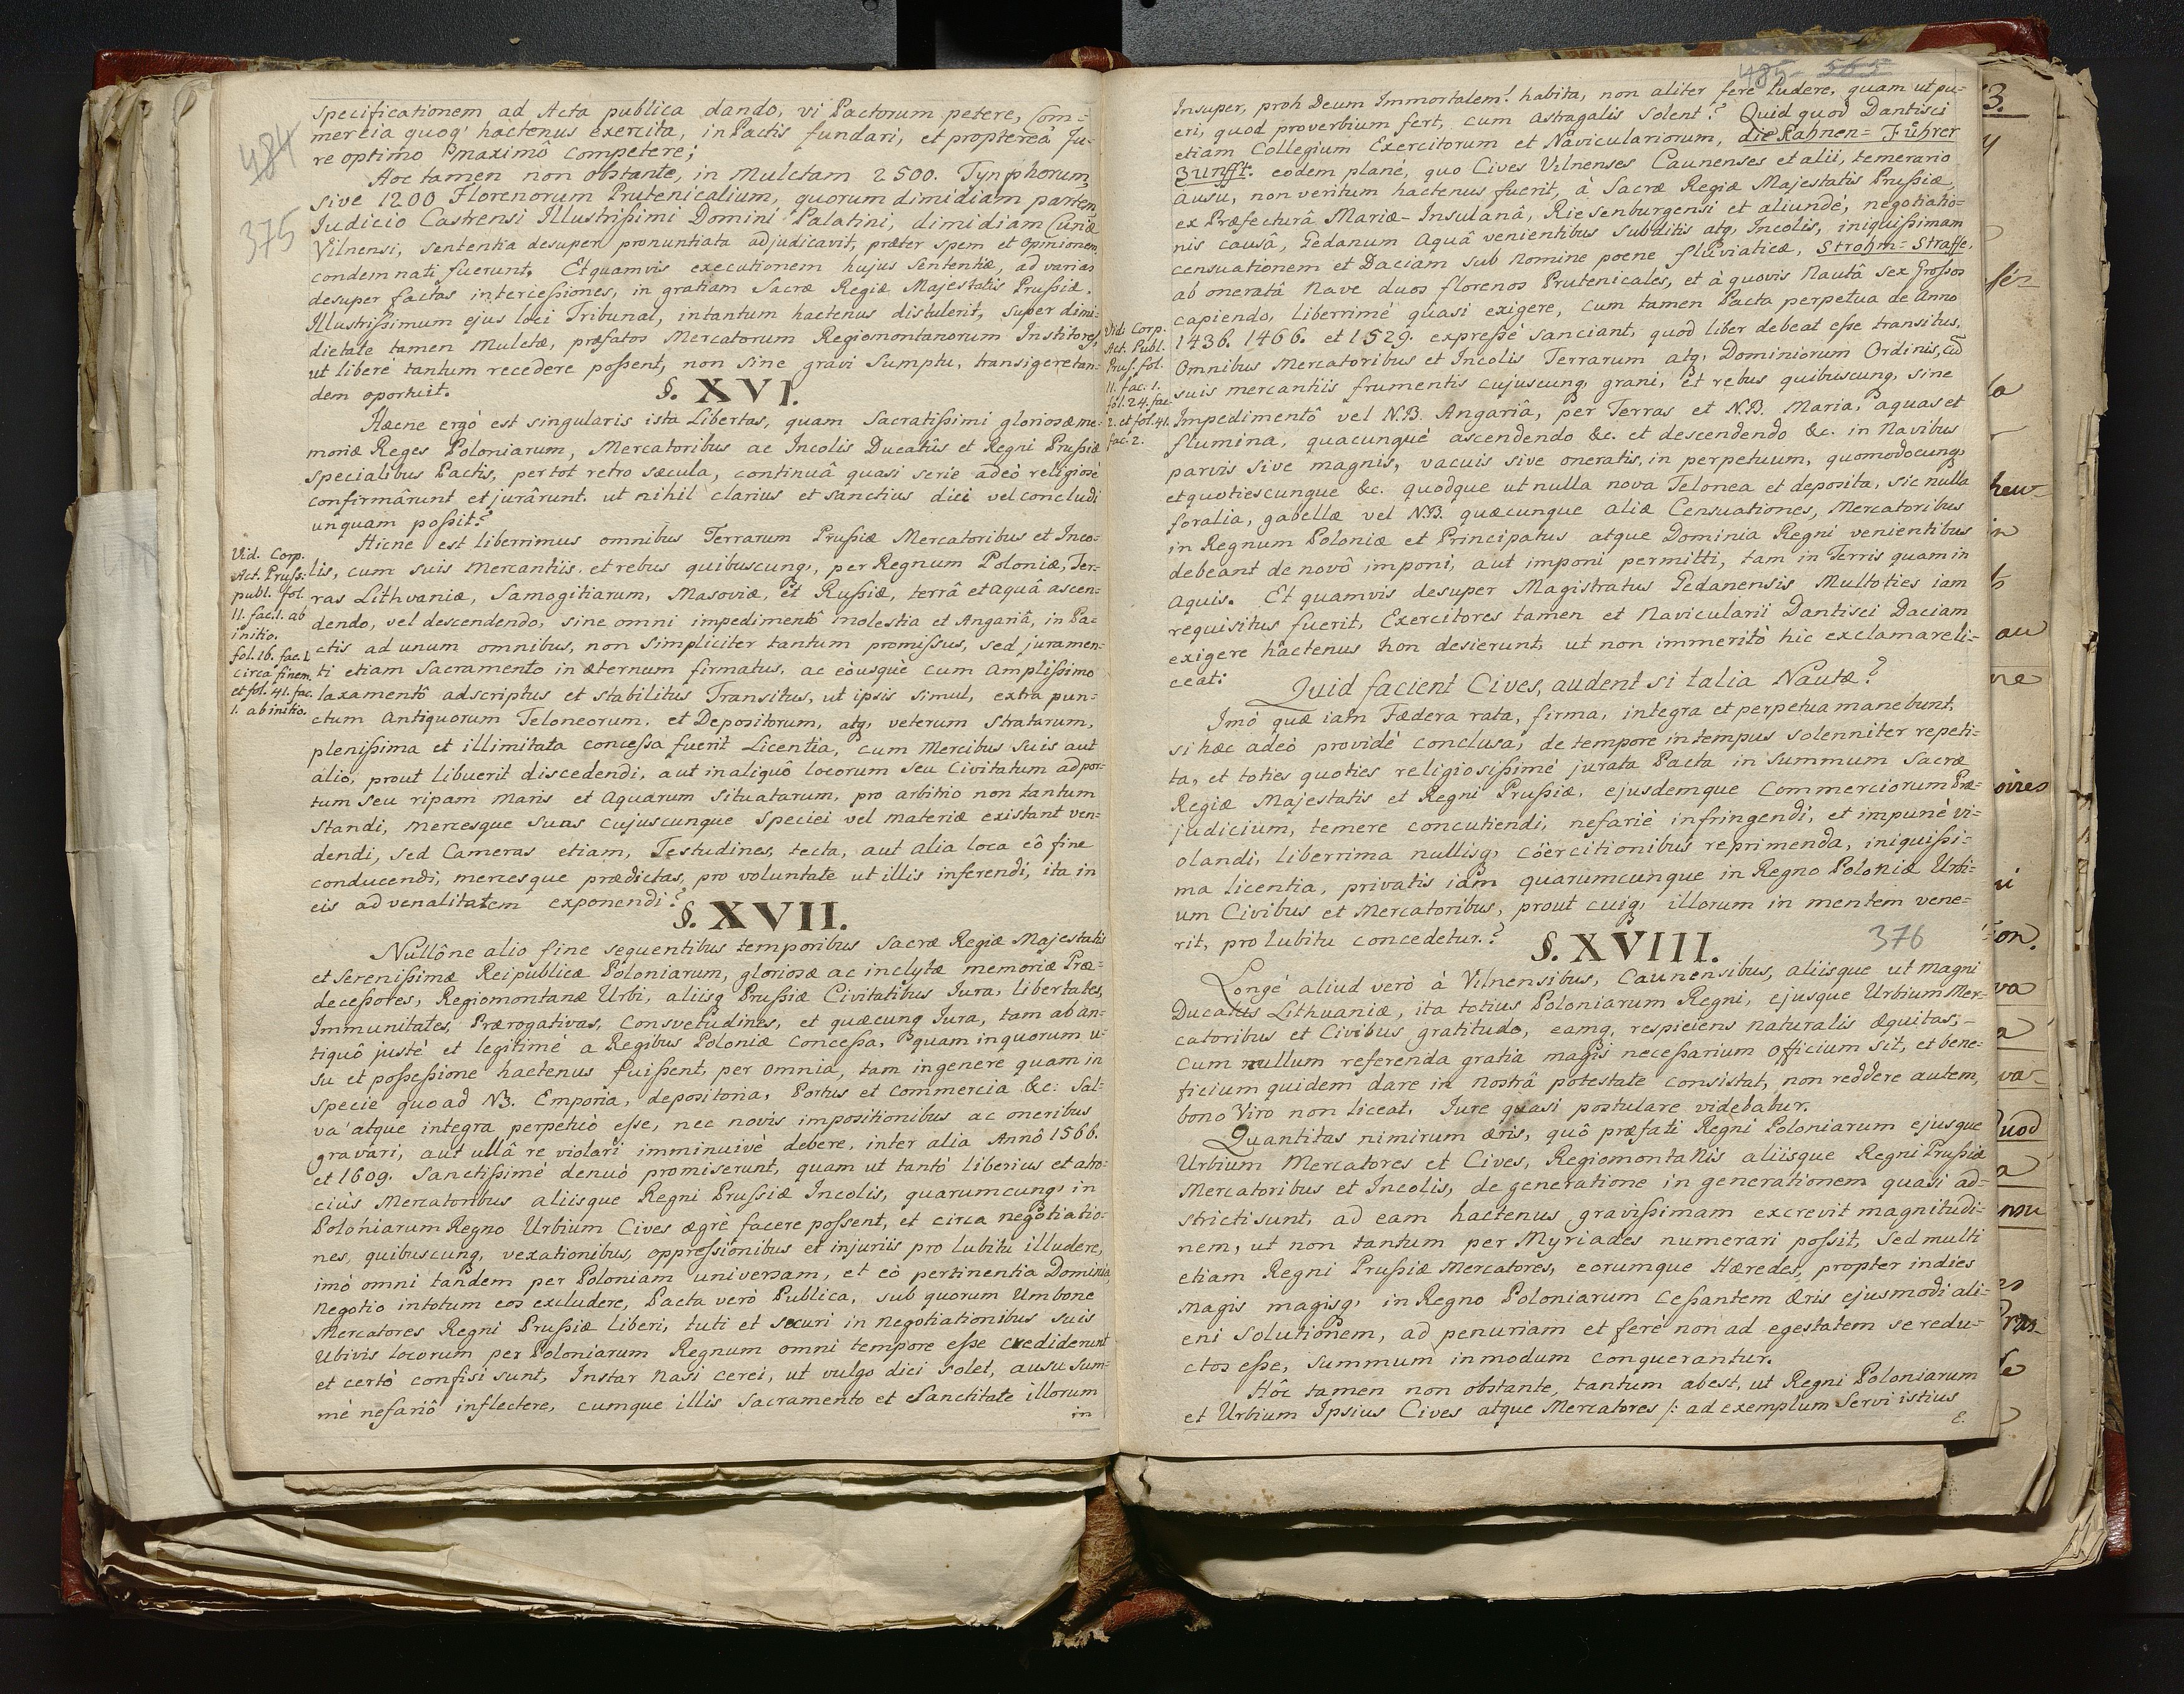 484
375
specificationem ad Acta publica dando, vi Pactorum petere, Com=
mercia quoq; hactenus exercita, in Pactis fundari, et proptereà Ju-
re optimo maximô competere;
Hoc tamen non obstante, in Mulctam 2500. Tynphorum,
sive 1200 Florenorum Prutenicalium, quorum dimidiam partem
Judicio Castrensi Illustrißimi Domini Palatini, dimidiam Curiæ
Vilnensi, sententia desuper pronuntiata adjudicavit, præter spem et opinionem
condemnati fuerunt. Et quamvis executionem hujus Sententiæ, ad varias
desuper factas interceßiones, in gratiam Sacræ Regiæ Majestatis Prußiæ.
Illustrißimum ejus loci Tribunal, intantum hactenus distulerit, super dimi=
dietate tamen Mulctæ, præfatos Mercatorum Regiomontanorum Institores,
ut liberè tantum recedere poßent, non sine gravi Sumptu, transigere tan=
dem oportuit.
§. XVI.
Hæcne ergò est singularis ista Libertas, quam Sacratißimi gloriosæ me=
moriæ Reges Poloniarum, Mercatoribus ac Incolis Ducatûs et Regni Prußiæ
specialibus Pactis, per tot retro sæcula, continuâ quasi serie adeò religiosè
confirmârunt et jurârunt, ut nihil clarius et sanctius dici vel concludi
unquam poßit?
Hicne est liberrimus omnibus Terrarum Prußiæ Mercatoribus et Inco=
lis, cum suis Mercantiis, et rebus quibuscunq;, per Regnum Poloniæ, Ter=
ras Lithvaniæ, Samogitiarum, Masoviæ, et Rußiæ, terrâ et aquâ ascen=
dendo, vel descendendo, sine omni impedimentô molestia et Angariâ, in Pa=
ctis ad unum omnibus, non simpliciter tantum promißus, sed juramen=
ti etiam Sacramento in æternum firmatus, ac eòusquè cum amplißimo
laxamentô adscriptus et stabilitus Transitus, ut ipsis simul, extra pun=
ctum Antiquorum Teloneorum, et Depositorum, atq; veterum Stratarum,
plenißima et illimitata conceßa fuerit Licentia, cum Mercibus suis aut
aliò, prout libuerit discedendi, aut in aliquô locorum seu Civitatum ad por=
tum seu ripam maris et Aquarum Situatarum, pro arbitrio non tantum
standi, mercesque suas cujuscunque speciei vel materiæ existant ven=
dendi, sed Cameras etiam, Testudines, tecta, aut alia loca eô fine
conducendi, mercesque prædictas, pro voluntate ut illis inferendi, ita in
eis ad venalitatem exponendi?
Vid. Corp.
Act. Pruss:
publ. fol.
11. fac. 1. ab
initio.
fol. 16. fac. 1.
circa finem.
et fol. 41. fac.
1. ab initio.
§. XVII.
Nullône alio fine sequentibus temporibus Sacræ Regiæ Majestatis
et Serenißimæ Reipublicæ Poloniarum, gloriosæ ac inclytæ memoriæ Præ=
deceßores, Regiomontanæ Urbi, aliisq; Prußiæ Civitatibus Jura, libertates,
Immunitates, Prærogativas, Consvetudines, et quæcunq; Jura, tam ab an=
tiquô justè et legitimè a Regibus Poloniæ conceßa, quam in quorum u=
su et poßeßione hactenus fuißent, per omnia, tam in genere quam in
specie quoad NB. Emporia, depositoria, Portus et Commercia &c: Sal=
va atque integra perpetuò eße, nec novis impositionibus ac oneribus
gravari, aut ullâ re violari imminuivè debere, inter alia Annô 1566.
et 1609. Sanctißimè denuò promiserunt, quam ut tantò liberius et atro=
cius Mercatoribus aliisque Regni Prußiæ Incolis, quarumcunq; in
Poloniarum Regno Urbium Cives ægrè facere poßent, et circa negotiatio=
nes, quibuscunq; vexationibus, oppreßionibus et injuriis pro lubitu illudere,
imò omni tandem per Poloniam universam, et eò pertinentia Dominia
Negotio intotum eos excludere, Pacta verò Publica, sub quorum Umbone
Mercatores Regni Prußiæ liberi, tuti et securi in negotiationibus suis
Ubivis locorum per Poloniarum Regnum omni tempore eße crediderunt
et certò confisi sunt, Instar Nasi cerei, ut vulgo dici solet, ausu sum=
mè nefariô inflectere, cumque illis Sacramento et Sanctitate illorum
in
485 565
Insuper, proh Deum Immortalem! habita, non aliter fere ludere, quam ut pu=
eri, quod proverbium fert, cum Astragalis solent? Quid quod Dantisci
etiam Collegium Exercitorum et Naviculariorum, die Kahnen=Führer
Zunfft. eodem planè, quo Cives Vilnenses Caunenses et alii, temerario
ausu, non veritum hactenus fuerit, à Sacræ Regiæ Majestatis Prußiæ
ex Præfecturâ Mariæ-Insulanâ, Riesenburgensi et aliundè, negotiatio=
nis causâ, Gedanum Aquâ venientibus Subditis atq; Incolis, iniquißimam
censuationem et Daciam sub nomine poene fluviaticæ, Strohm=Straffe,
ab oneratâ nave duos florenos Prutenicales, et à quovis Nautâ sex Grossos
capiendo, liberrimè quasi exigere, cum tamen Pacta perpetua de Anno
1436. 1466. et 1529. expreßè sanciant, quod liber debeat eße transitus,
Omnibus Mercatoribus et Incolis Terrarum atq; Dominiorum Ordinis, cũ
suis mercantiis frumentis cujuscunq; grani, et rebus quibuscunq; sine
Impedimentô vel N.B. Angariâ, per Terras et N.B. Maria, aquas et
flumina, quacunquè ascendendo &c. et descendendo &c. in Navibus
parvis sive magnis, vacuis sive oneratis, in perpetuum, quomodocunq;
et quotiescunque &c. quodque ut nulla nova Telonea et deposita, sic nulla
foralia, gabellæ vel NB. quæcunque aliæ Censuationes, Mercatoribus
in Regnum Poloniæ et Principatus atque Dominia Regni venientibus
debeant de novô imponi, aut imponi permitti, tam in Terris quam in
Aquis. Et quamvis desuper Magistratus Gedanensis Multoties iam
requisitus fuerit, Exercitores tamen et Navicularii Dantisci Daciam
exigere hactenus non desierunt, ut non immeritò hic exclamare li=
ceat:
Vid. Corp.
Act. Publ.
Prus. fol.
11. fac. 1.
fol. 24. fac
2. et fol. 41.
fac: 2.
Quid facient Cives, audent si talia Nautæ?
Imò quæ iam Fœdera rata, firma, integra et perpetua manebunt,
si hæc adeò providè conclusa, de tempore in tempus solenniter repeti=
ta, et toties quoties religiosißimè jurata Pacta in Summum Sacræ
Regiæ Majestatis et Regni Prußiæ, ejusdemque Commerciorum Præ=
judicium, temere concutiendi, nefariè infringendi, et impunè vi=
olandi, liberrima nullisq; cöercitionibus reprimenda, iniquißi=
ma licentia, privatis iam quarumcunque in Regno Poloniæ Urbi=
um Civibus et Mercatoribus, prout cuiq; illorum in mentem vene=
rit, pro lubitu concedetur.?
§. XVIII.
376
Longè aliud verò à Vilnensibus, Caunensibus, aliisque ut magni
Ducatus Lithuaniæ, ita totius Poloniarum Regni, ejusque Urbium Mer=
catoribus et Civibus gratitudo, eamq; respiciens naturalis æquitas,
cum nullum referenda gratia magis neceßarium Officium sit, et bene=
ficium quidem dare in nostrâ potestate consistat, non reddere autem,
bono Viro non liceat, Jure quasi postulare videbatur.
Quantitas nimirum æris, quô præfati Regni Poloniarum ejusque
Urbium Mercatores et Cives, Regiomontanis aliisque Regni Prußiæ
Mercatoribus et Incolis, de generatione in generationem quasi ad=
stricti sunt, ad eam hactenus gravißimam excrevit magnitudi=
nem, ut non tantum per Myriades numerari poßit, Sed multi
etiam Regni Prußiæ Mercatores, eorumque Hæredes, propter indies
magis magisq; in Regno Poloniarum ceßantem Æris ejusmodi ali=
eni Solutionem, ad penuriam et ferè non ad egestatem se redu=
ctos eße, summum inmodum conquerantur.
Hôc tamen non obstante, tantùm abest, ut Regni Poloniarum
et Urbium Ipsius Cives atque Mercatores /: ad exemplum Servi istius
E.